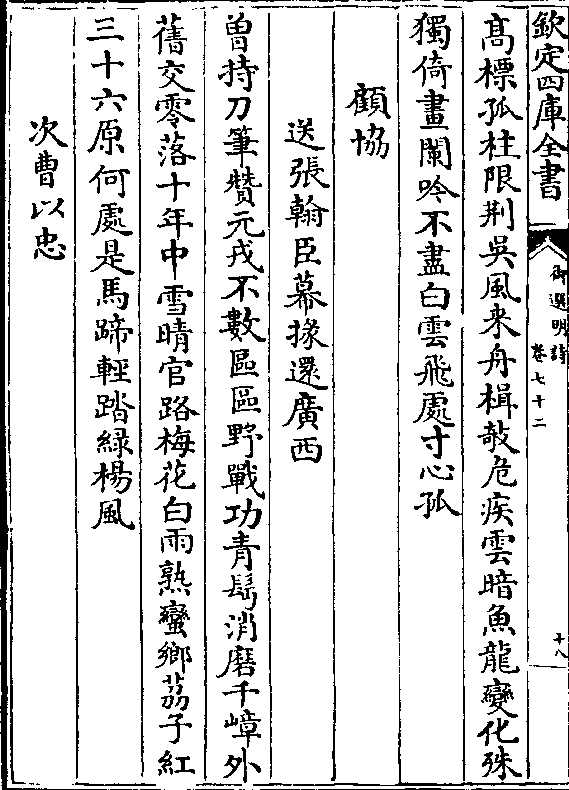 欽定四庫全書
御選明詩
卷七十二
十八
高標孤柱限荆吳風来舟楫敧危疾雲暗魚龍變化殊
獨倚畫闌吟不盡白雲飛處寸心孤
顧協
送張翰臣幕掾還廣西
曽持刀筆贊元戎不數區區野戰功青髩消磨千嶂外
舊交零落十年中雪晴官路梅花白雨熟蠻鄉茘子紅
三十六原何處是馬蹄輕踏緑楊風
次曹以忠